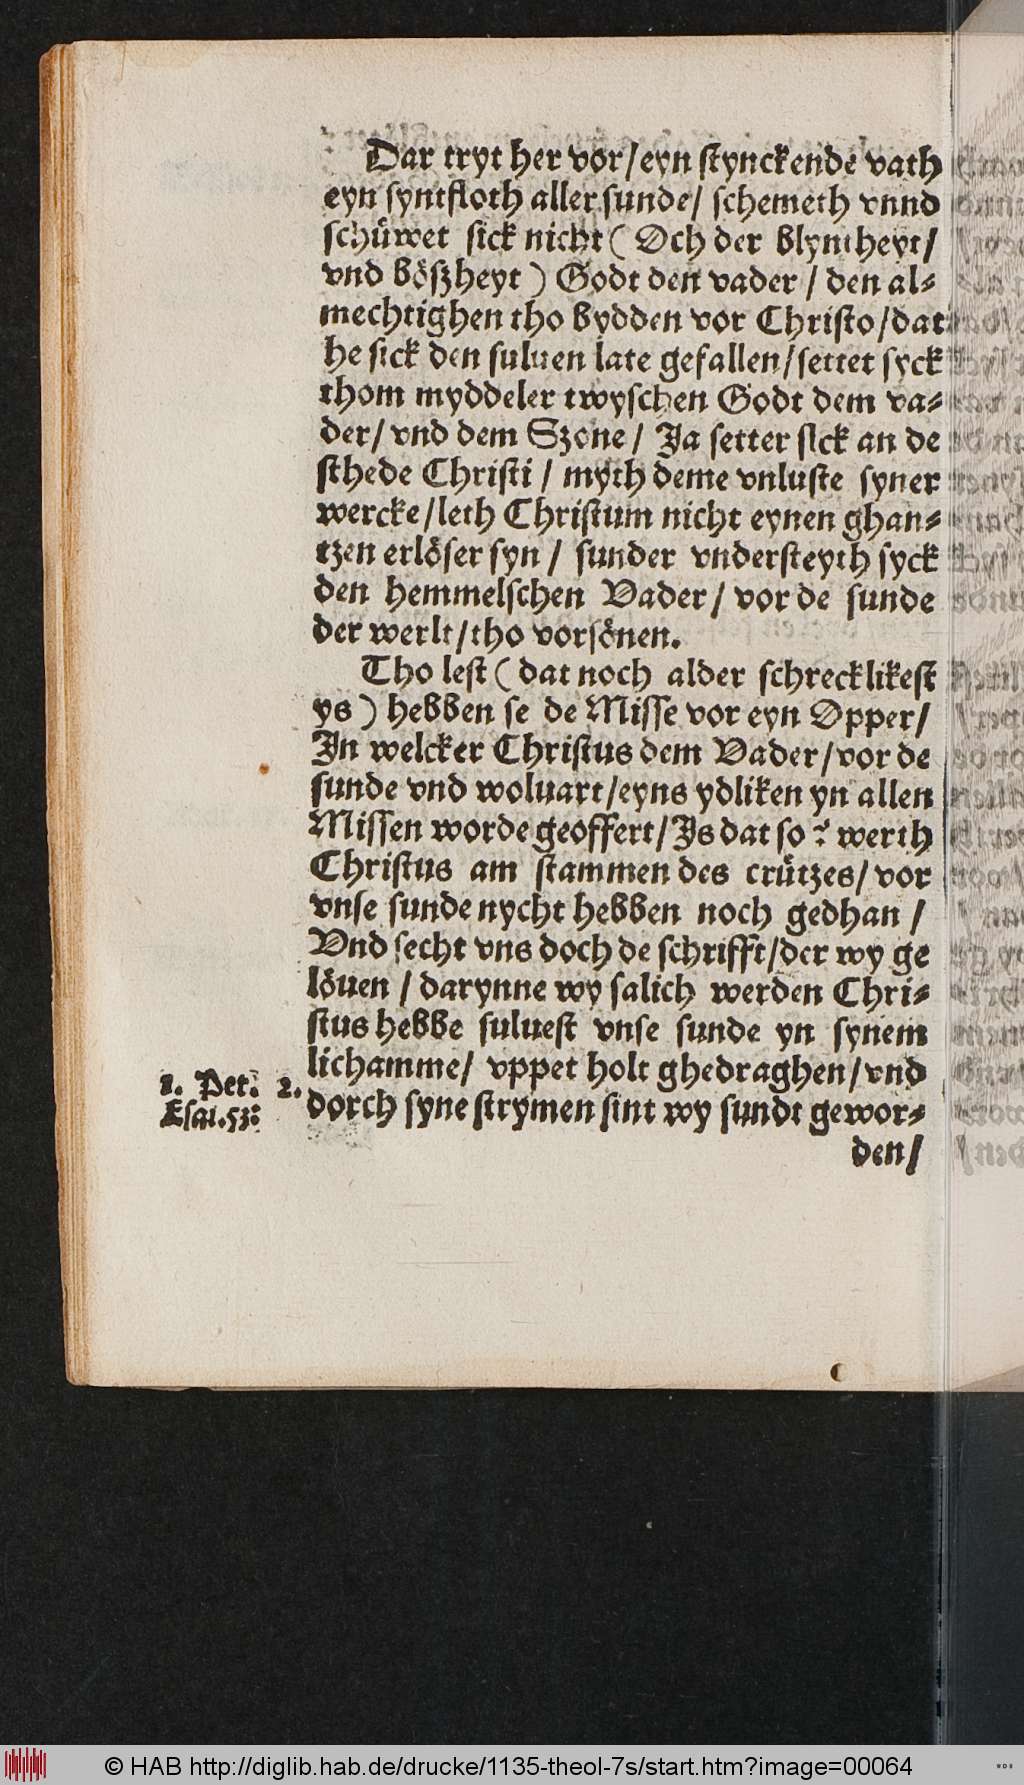 Dar tryt her vor/ eyn stynckende vath
eyn syntfloth aller sunde/ schemeth vnnd
schüwet sick nicht ( Och der blyntheyt/
vnd böszheyt ) Godt den vader / den al⸗
mechtighen tho bydden vor Christo/ dat
he sick den suluen late gefallen/ settet syck
thom myddeler twyschen Godt dem va⸗
der/ vnd dem Szone/ Ja settet sick an de
sthede Christi / myth deme vnluste syner
wercke/ leth Christum nicht eynen ghan⸗
tzen erlöser syn / sunder vndersteyth syck
den hemmelschen Vader/ vor de sunde
der werlt/ tho vorsönen.
Tho lest ( dat noch alder schrecklikest
ys ) hebben se de Misse vor eyn Opper/
In welcker Christus dem Vader/ vor de
sunde vnd woluart/ eyns ydliken yn allen
Missen worde geoffert/ Js dat so? werth
Christus am stammen des crützes/ vor
vnse sunde nycht hebben noch gedhan /
Vnd secht vns doch de schrifft/ der wy ge
löuen / darynne wy salich werden Chri⸗
stus hebbe suluest vnse sunde yn synem
lichamme/ vppet holt ghedraghen/ vnd
1. Pet. 2.
Esai. 53:
dorch syne strymen sint wy sundt gewor⸗
den/
© HAB http://diglib.hab.de/drucke/1135-theol-7s/start.htm?image=00064